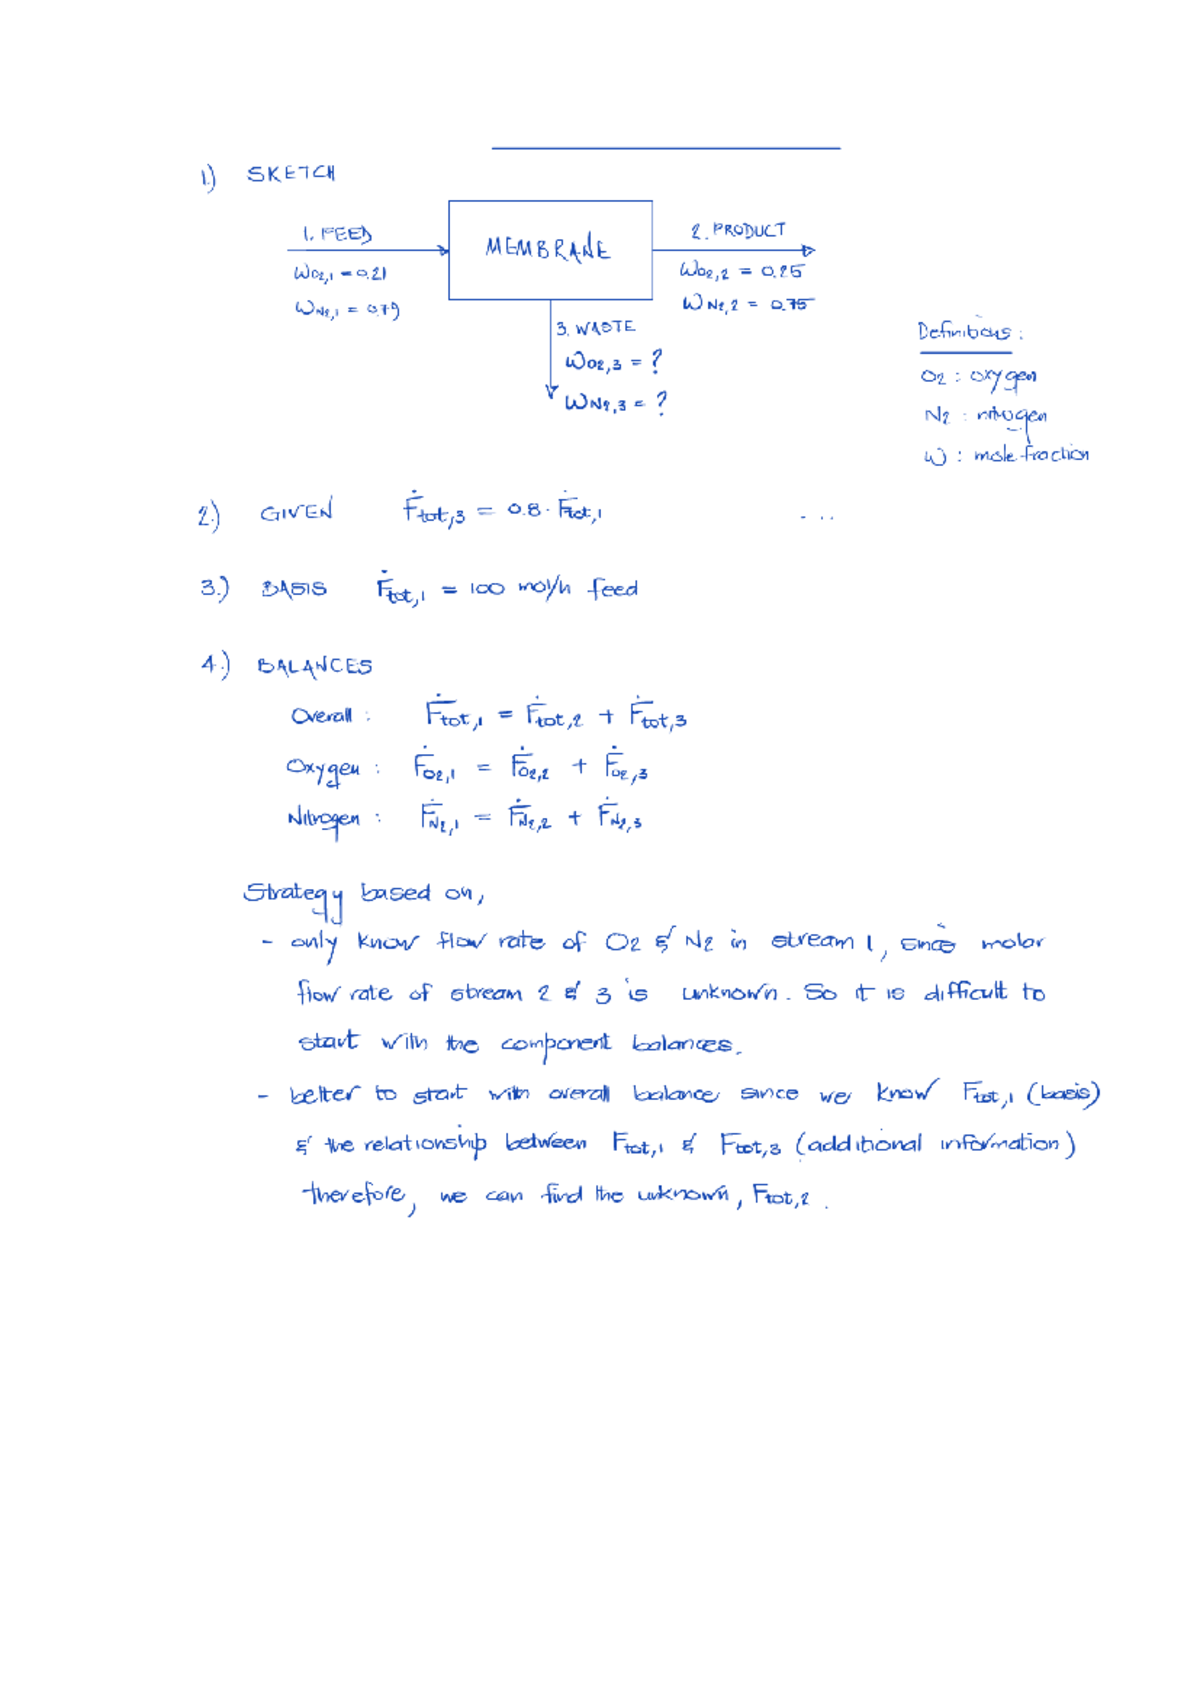 1.) SKETCH
1. FEED
MEMBRANE
2. PRODUCT
WO2,1 = 0.21
WO2,2 = 0.25
WN2,1 = 0.79
WN2,2 = 0.75
3. WASTE
WO2,3 = ?
WN2,3 = ?
Definitions :
O2 : oxygen
N2 : nitrogen
W : mole fraction
2.) GIVEN Ḟtot,3 = 0.8 · Ḟtot,1 ...
3.) BASIS Ḟtot,1 = 100 mol/h feed
4.) BALANCES
Overall : Ḟtot,1 = Ḟtot,2 + Ḟtot,3
Oxygen : ḞO2,1 = ḞO2,2 + ḞO2,3
Nitrogen : ḞN2,1 = ḞN2,2 + ḞN2,3
Strategy based on,
- only know flow rate of O2 & N2 in stream 1, since molar
flow rate of stream 2 & 3 is unknown. So it is difficult to
start with the component balances.
- better to start with overall balance since we know Ftot,1 (basis)
& the relationship between Ftot,1 & Ftot,3 (additional information)
therefore, we can find the unknown, Ftot,2.